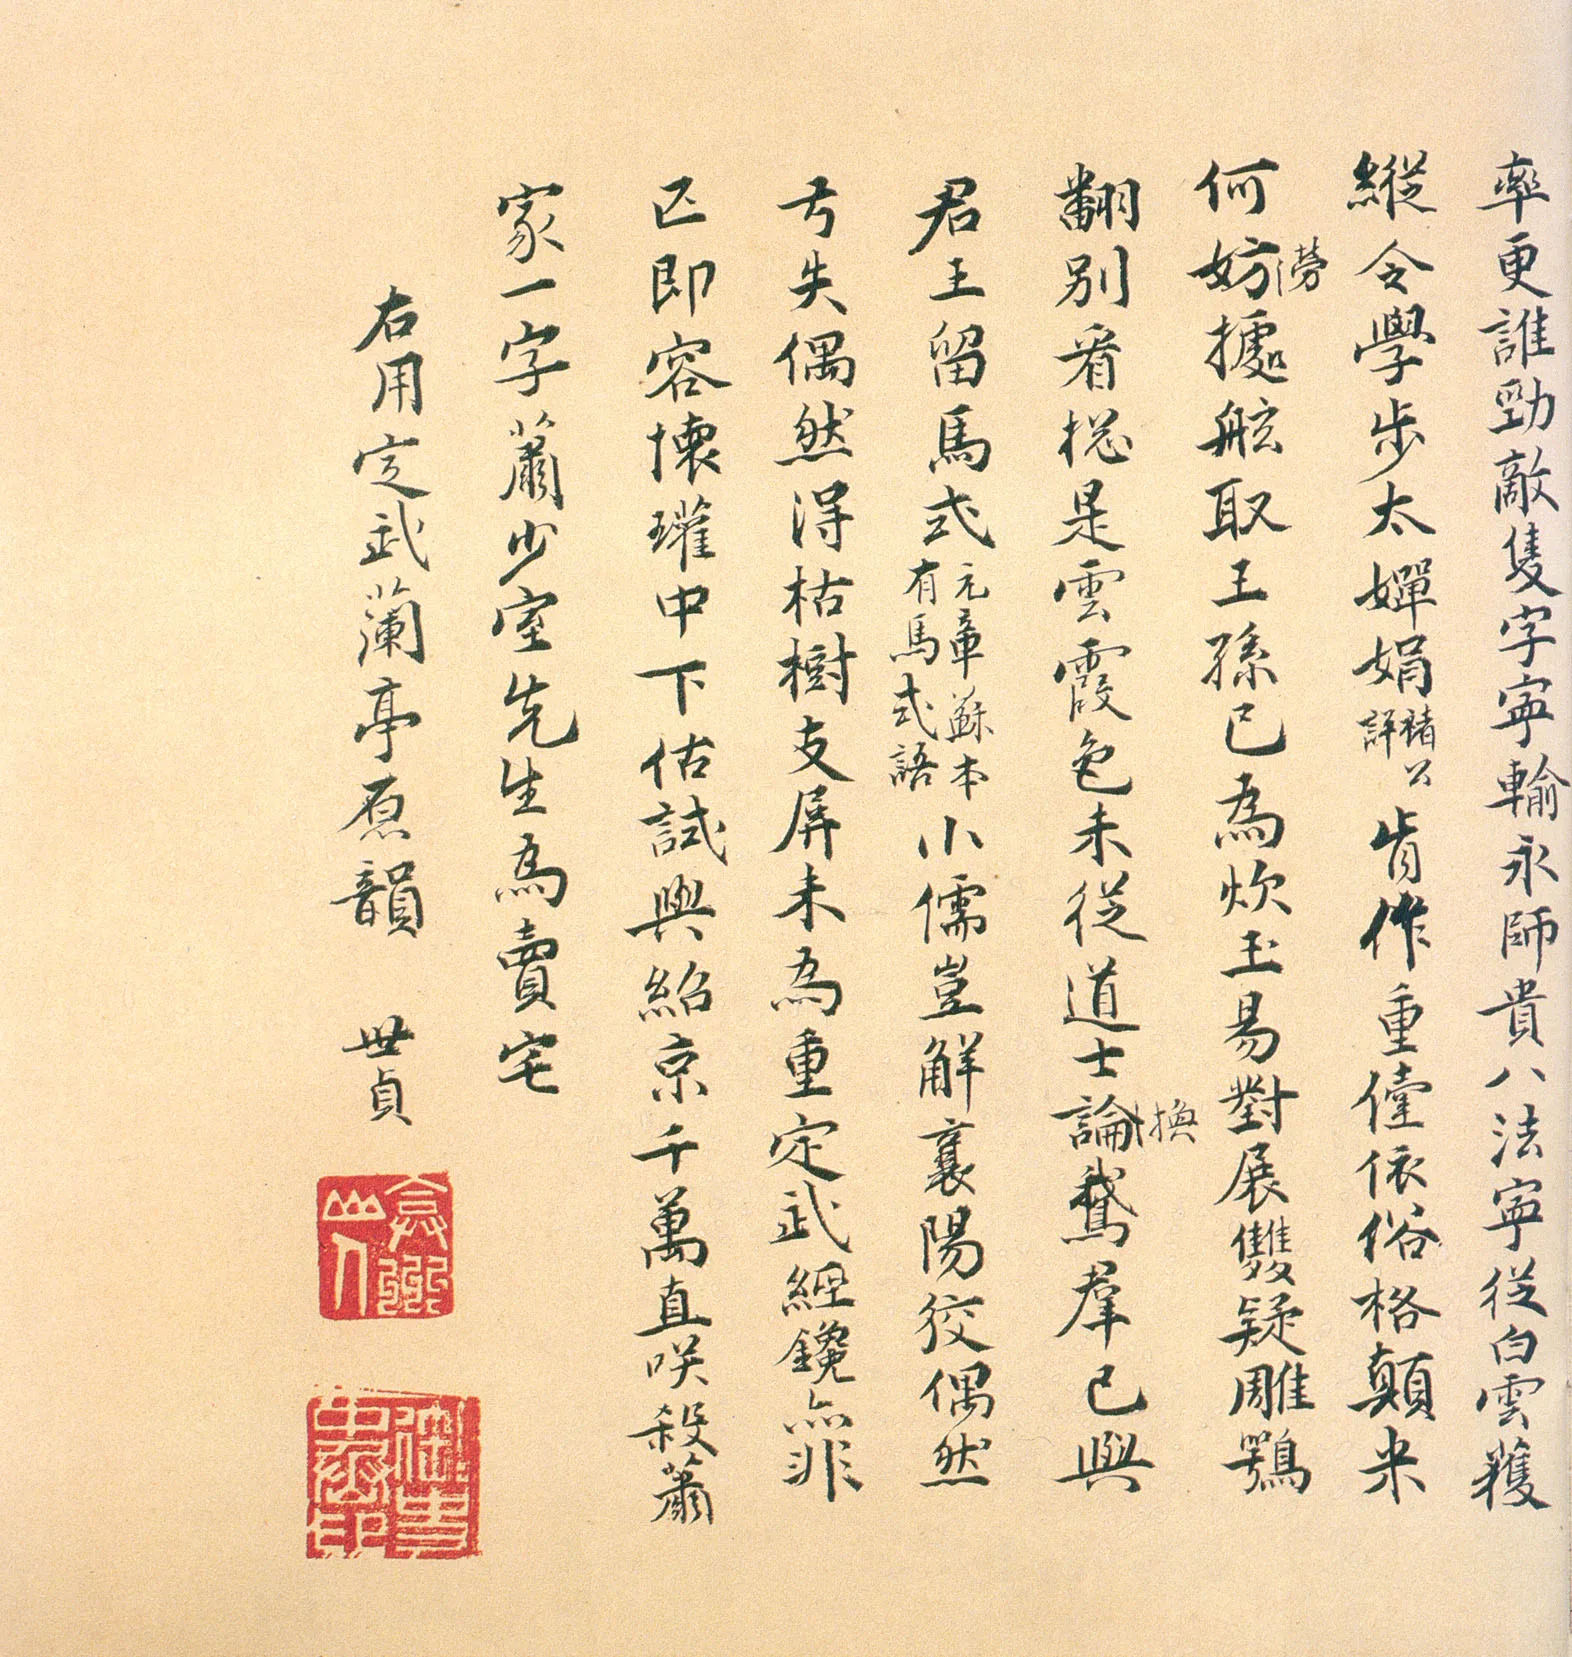 率更誰勁敵隻字寧輸永師貴八法寧從白雲穫
縱令學步太嬋娟褚公評肯作重儓依俗格顛米
何妨澇攄舷取王孫已為炊玉易對展雙疑雕鶚
翻別看捴是雲霞色未從道士論換鵝羣已與
君王留馬式元章蘇本有馬式語小儒豈解襄陽狡偶然
亐失偶然得枯樹支屏未為重定武經鑱亦非
匹即容懷瓘中下估試與紹京千萬直咲殺蕭
家一字蕭少室先生為賣宅
右用定武蘭亭原韻 世貞